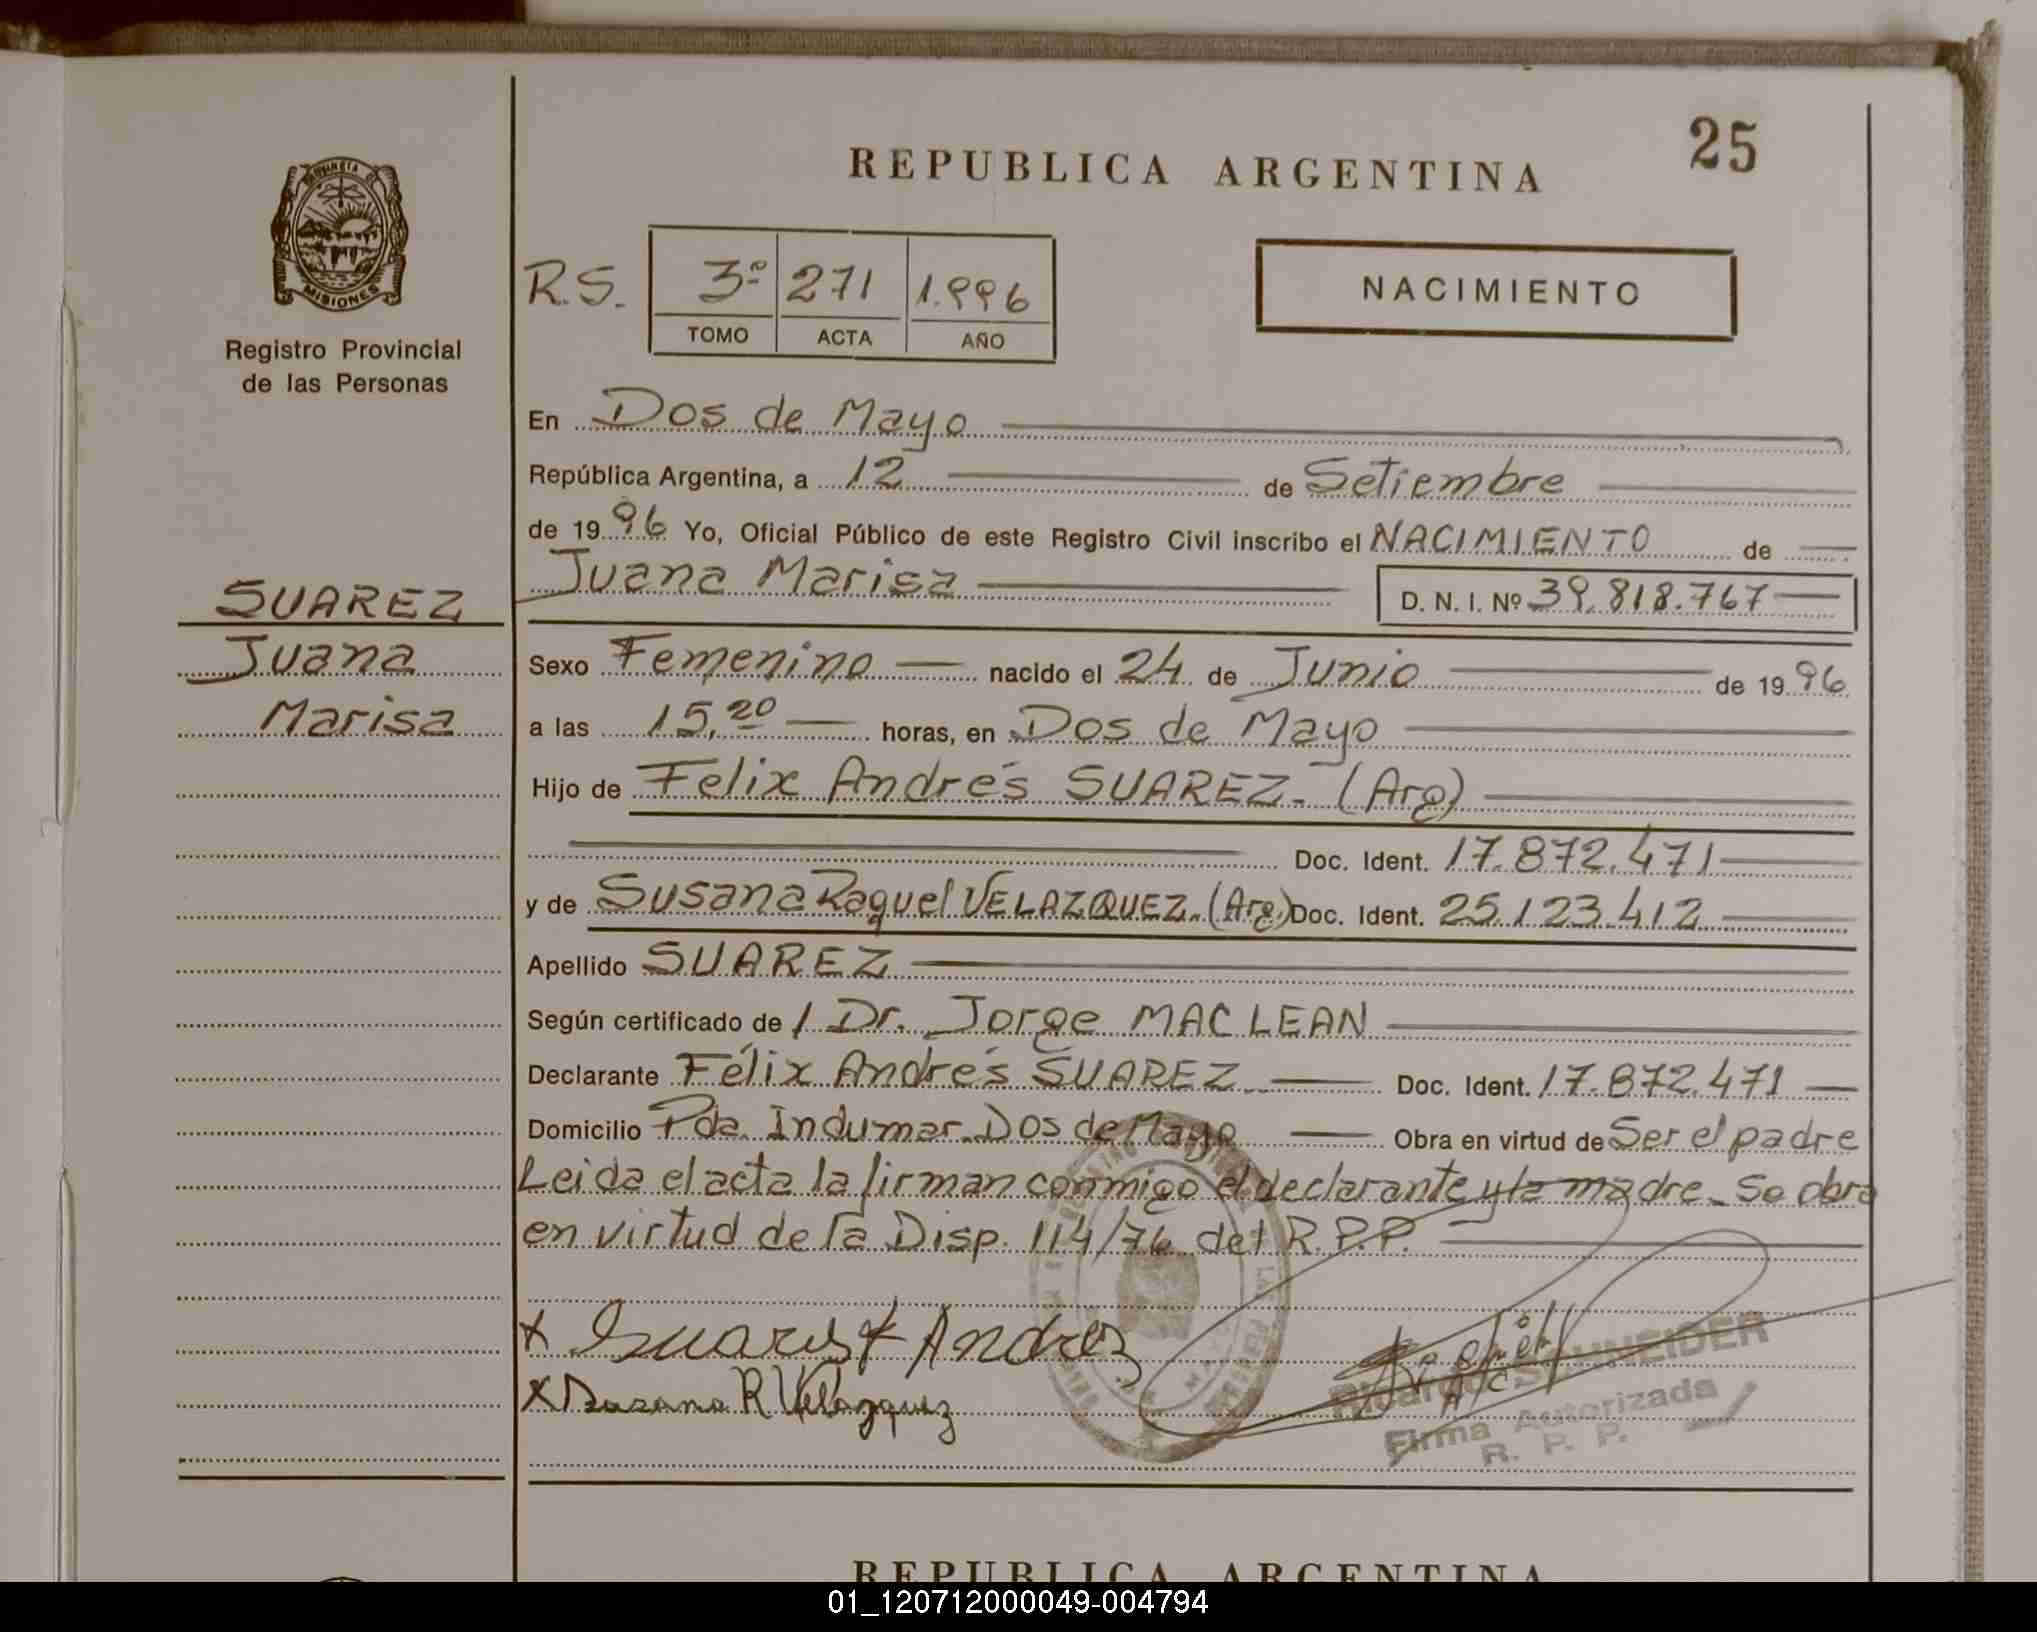 25
REPUBLICA ARGENTINA
PROVINCIA D
MISIONES
Registro Provincial
de las Personas
R.S. 3º 271 1.996
TOMO ACTA AÑO
NACIMIENTO
En Dos de Mayo
República Argentina, a 12 de Setiembre
de 1996 Yo, Oficial Público de este Registro Civil inscribo el NACIMIENTO de
Juana Marisa D. N. I. Nº 39.818.767
SUAREZ
Juana
Marisa
Sexo Femenino nacido el 24 de Junio de 1996
a las 15,20 horas, en Dos de Mayo
Hijo de Felix Andrés SUAREZ. (Arg)
Doc. Ident. 17.872.471
y de Susana Raquel VELAZQUEZ. (Arg) Doc. Ident. 25.123.412
Apellido SUAREZ
Según certificado de / Dr. Jorge MAC LEAN
Declarante Félix Andrés SUAREZ Doc. Ident. 17.872.471
Domicilio Pda. Indumar. Dos de Mayo Obra en virtud de Ser el padre
Leida el acta la firman conmigo el declarante y la madre. Se obra
en virtud de la Disp. 114/76 del R.P.P.
x Suares F Andres
x Susana R Velazquez
Ricardo SCHNEIDER
Firma Autorizada
R. P. P.
REPUBLICA ARGENTINA
01_120712000049-004794